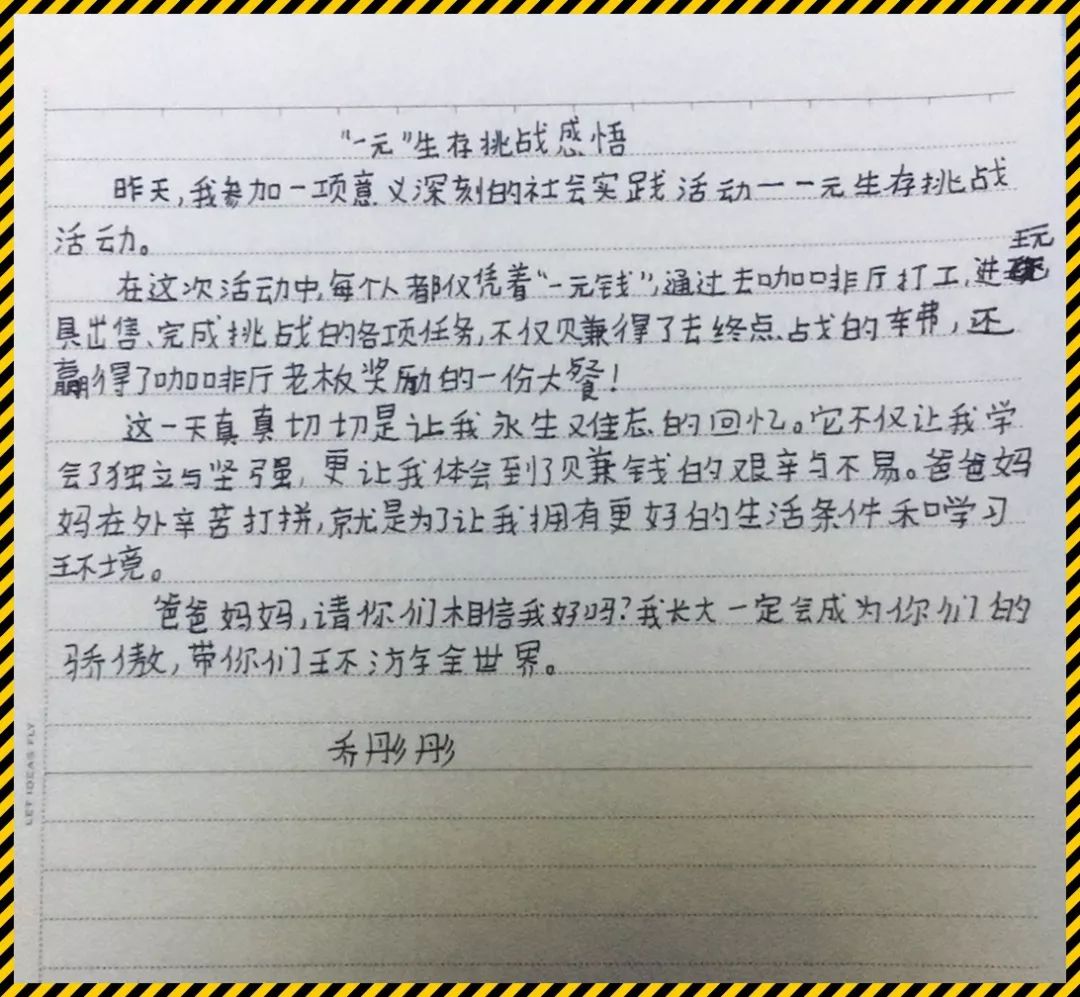 “一元”生存挑战感悟
昨天,我参加一项意义深刻的社会实践活动——一元生存挑战
活动。
在这次活动中,每个人都仅凭着“一元钱”,通过去咖啡厅打工,进玩
具出售、完成挑战的各项任务,不仅赚得了去终点站的车费,还
赢得了咖啡厅老板奖励的一份大餐!
这一天真真切切是让我永生难忘的回忆。它不仅让我学
会了独立与坚强,更让我体会到了赚钱的艰辛与不易。爸爸妈
妈在外辛苦打拼,就是为了让我拥有更好的生活条件和学习
环境。
爸爸妈妈,请你们相信我好吗?我长大一定会成为你们的
骄傲,带你们环游全世界。
乔彤彤
LET IDEAS FLY